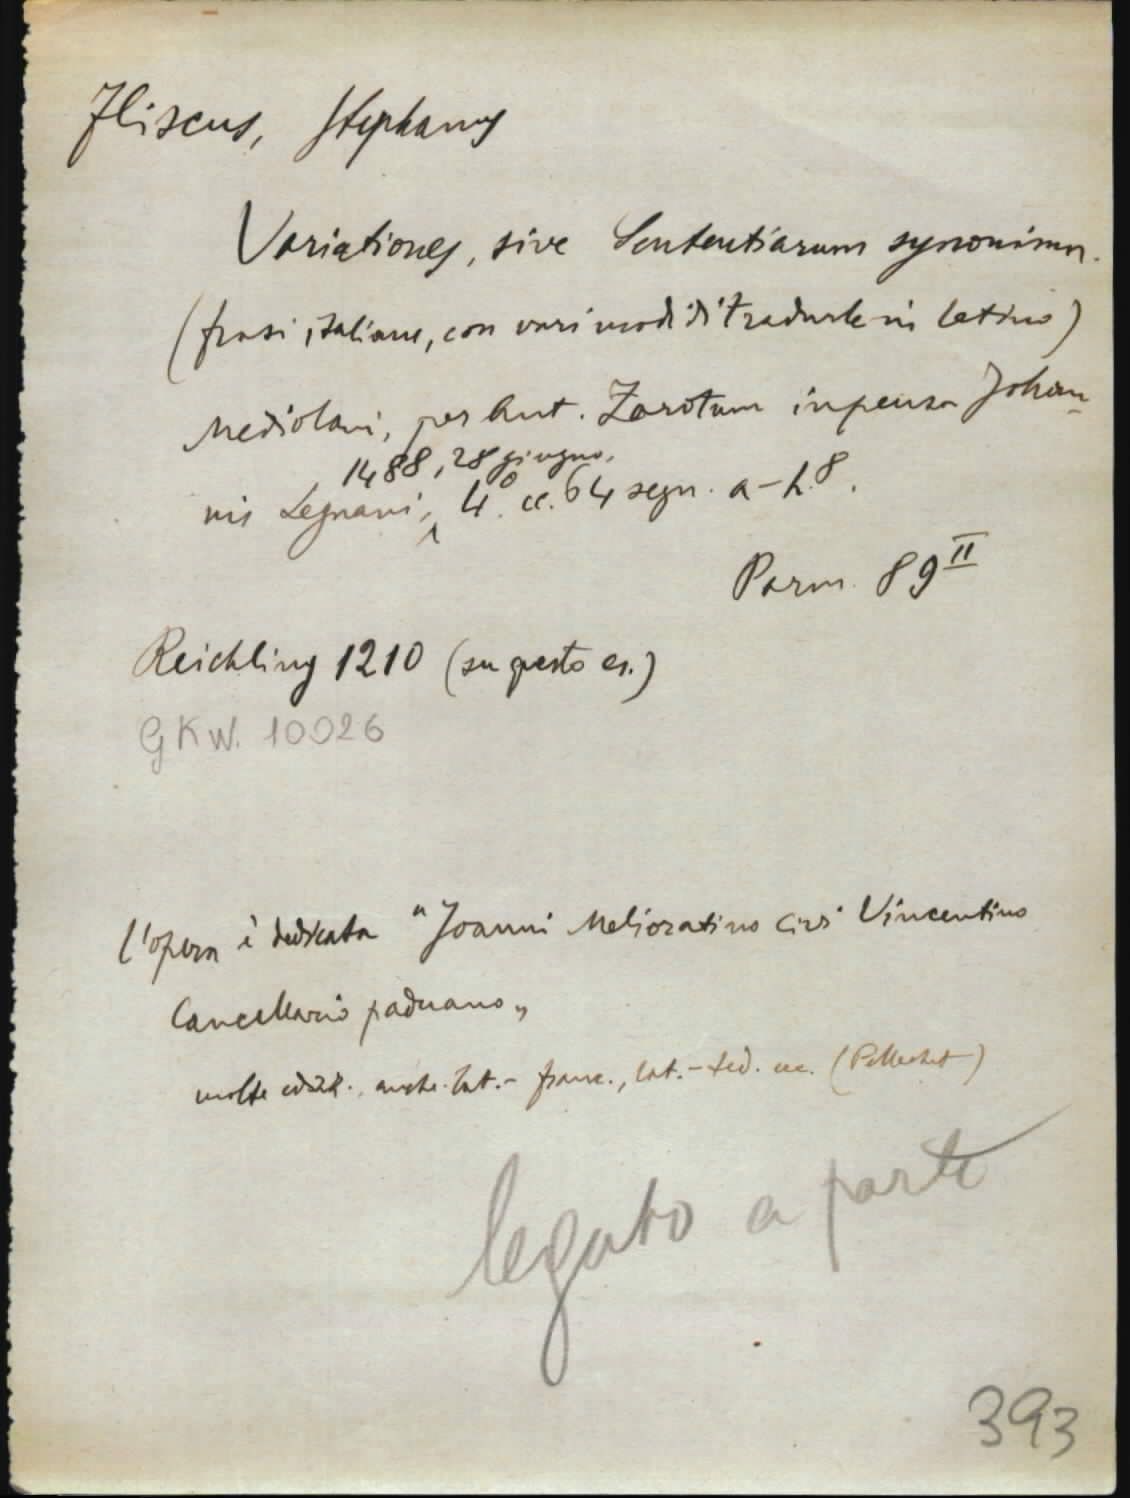 Fliscus, Stephanus
Variationes, sive Sententiarum synonima.
(frasi italiane, con vari modi di tradurle in latino)
Mediolani, per Ant. Zarotum inpensa Johan-
1488, 28 giugno,
nis Legnani, 4º. cc. 64 segn. a-h8.
Parm. 89 II
Reichling 1210 (su questo es.)
GKW. 10026
L'opera è dedicata "Joanni Melioratino Civi Vincentino
Cancellario paduano"
molte edizz., anche lat.- franc., lat.- ted. ecc. (Pellechet)
legato a parte
393